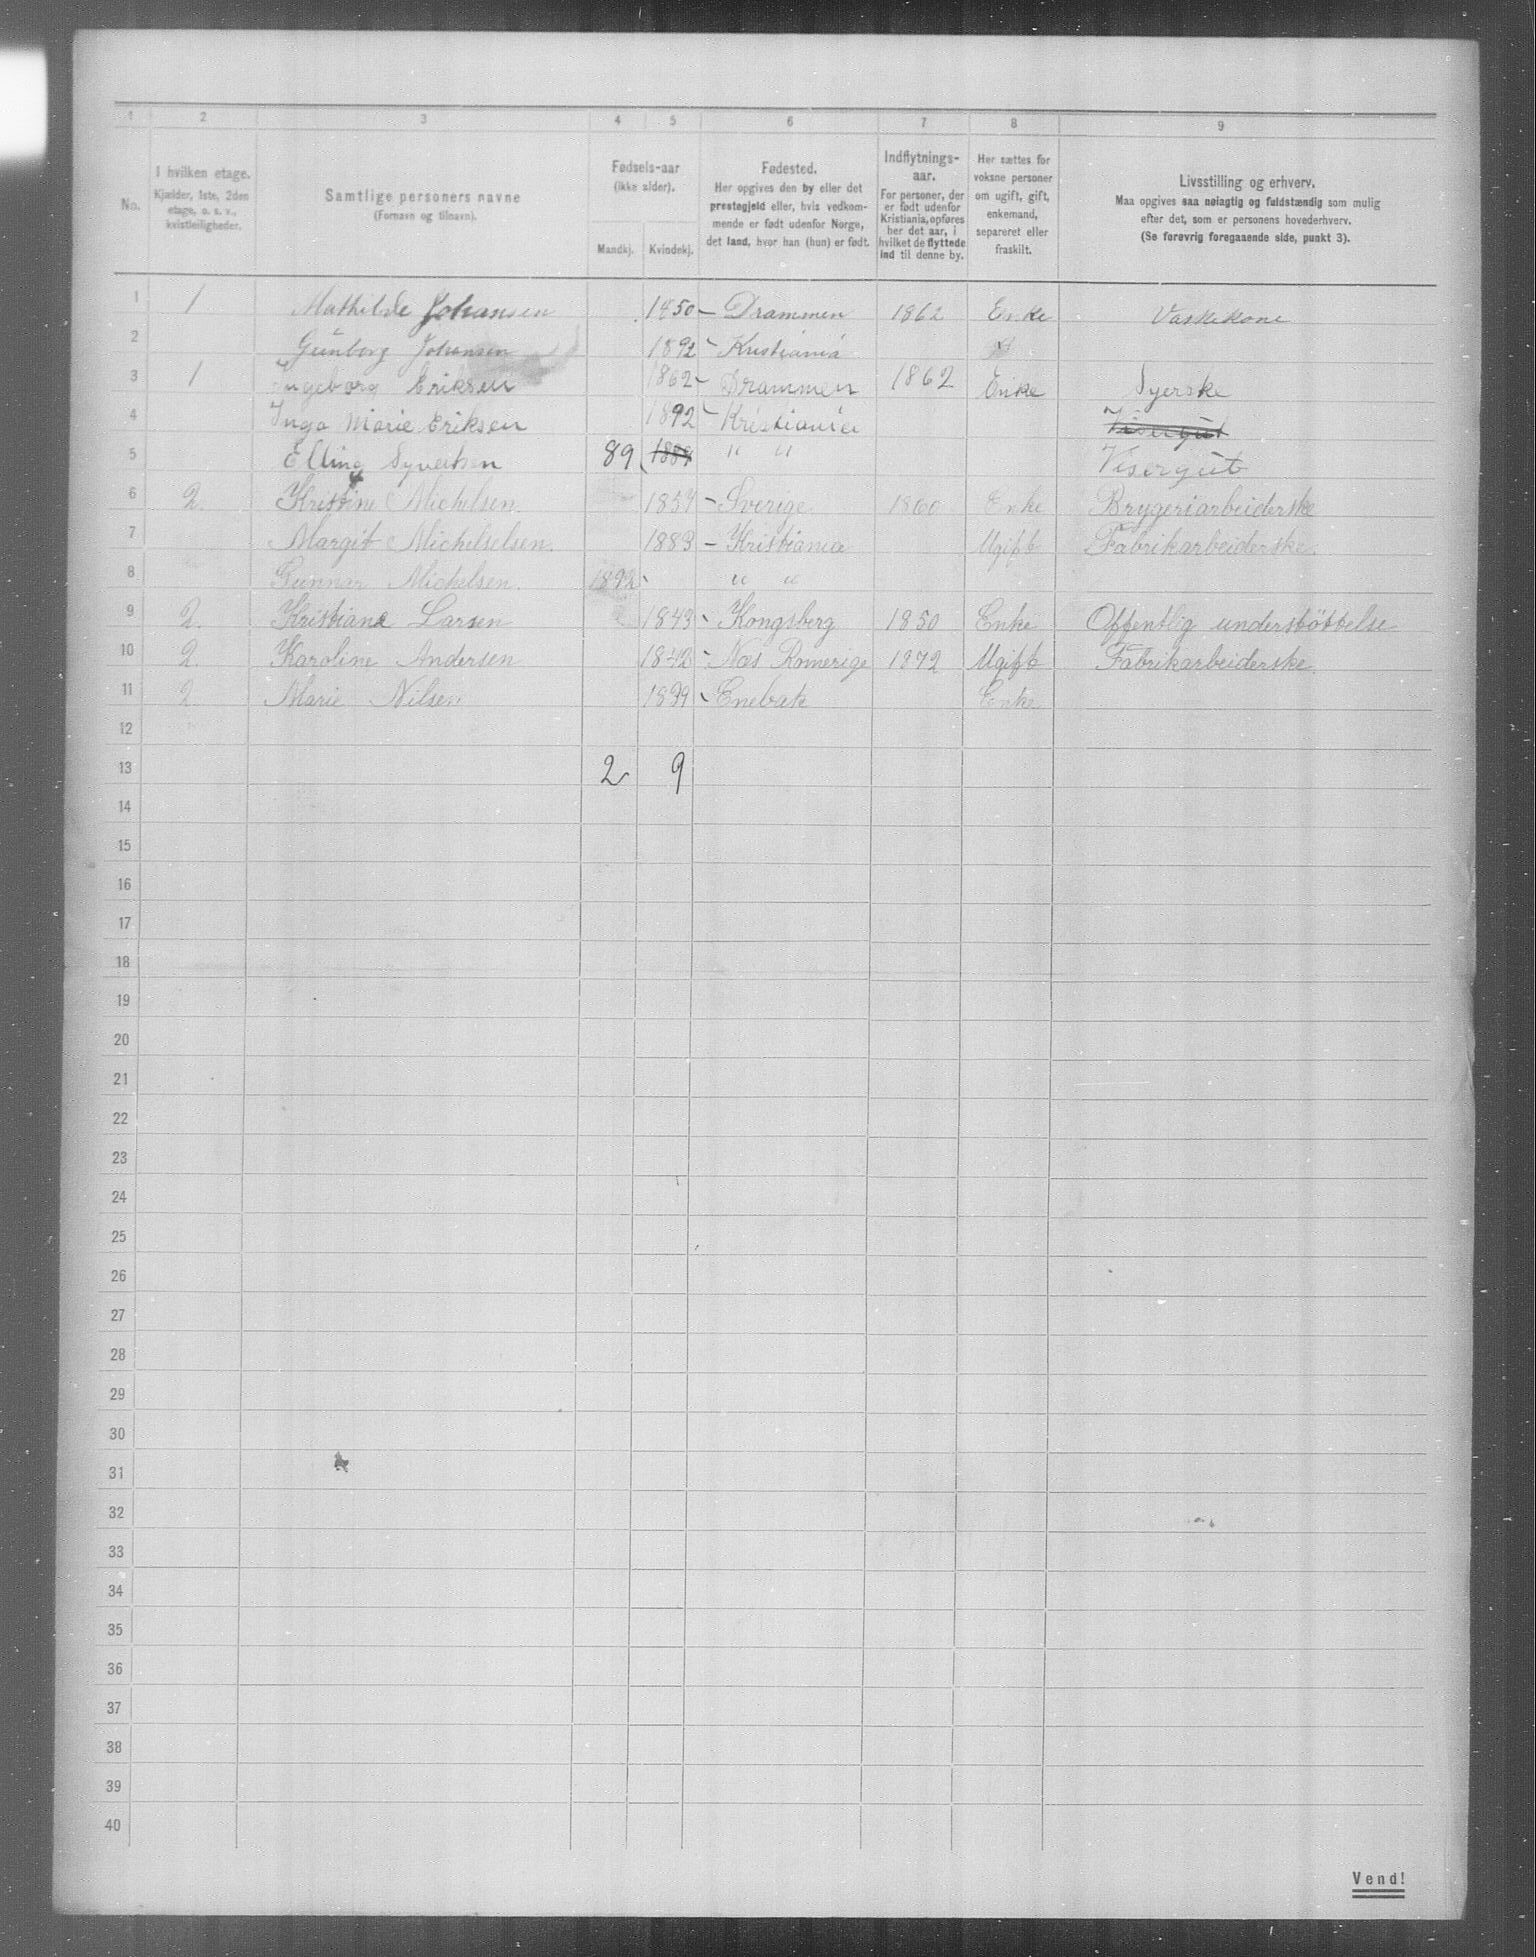 1 2 3 4 5 6 7 8 9
No.
I hvilken etage.
Kjælder, 1ste, 2den
etage, o. s. v.,
kvistleiligheder.
Samtlige personers navne
(Fornavn og tilnavn).
Fødsels-aar
(ikke alder).
Mandkj. Kvindekj.
Fødested.
Her opgives den by eller det
prestegjeld eller, hvis vedkom-
mende er født udenfor Norge,
det land, hvor han (hun) er født.
Indflytnings-
aar.
For personer, der
er født udenfor
Kristiania, opføres
her det aar, i
hvilket de flyttede
ind til denne by.
Her sættes for
voksne personer
om ugift, gift,
enkemand,
separeret eller
fraskilt.
Livsstilling og erhverv.
Maa opgives saa nøiagtig og fuldstændig som mulig
efter det, som er personens hovederhverv.
(Se forøvrig foregaaende side, punkt 3).
1 1 Mathilde Johansen 1850 – Drammen 1862 Enke Vaskekone
2 Gunborg Johansen 1892 – Kristiania
3 1 Ingeborg Eriksen 1862 – Drammen 1862 Enke Syerske
4 Inga Marie Eriksen 1892 – Kristiania Visergut
5 Elling Syvertsen 89 1889 " " Visergut
6 2. Kristine Michelsen. 1854 – Sverige 1860 Enke Brygeriarbeiderske
7 Margit Michelselsen. 1883 – Kristiania Ugift Fabrikarbeiderske.
8 Gunnar Michelsen. 1892 " "
9 2. Kristiane Larsen 1843 Kongsberg 1850 Enke Offentlig understöttelse
10 2. Karoline Andersen 1842 Nes Romerige 1872 Ugift Fabrikarbeiderske.
11 2. Marie Nilsen 1839 Enebak Enke
12
13 2 9
14
15
16
17
18
19
20
21
22
23
24
25
26
27
28
29
30
31
32
33
34
35
36
37
38
39
40
Vend!